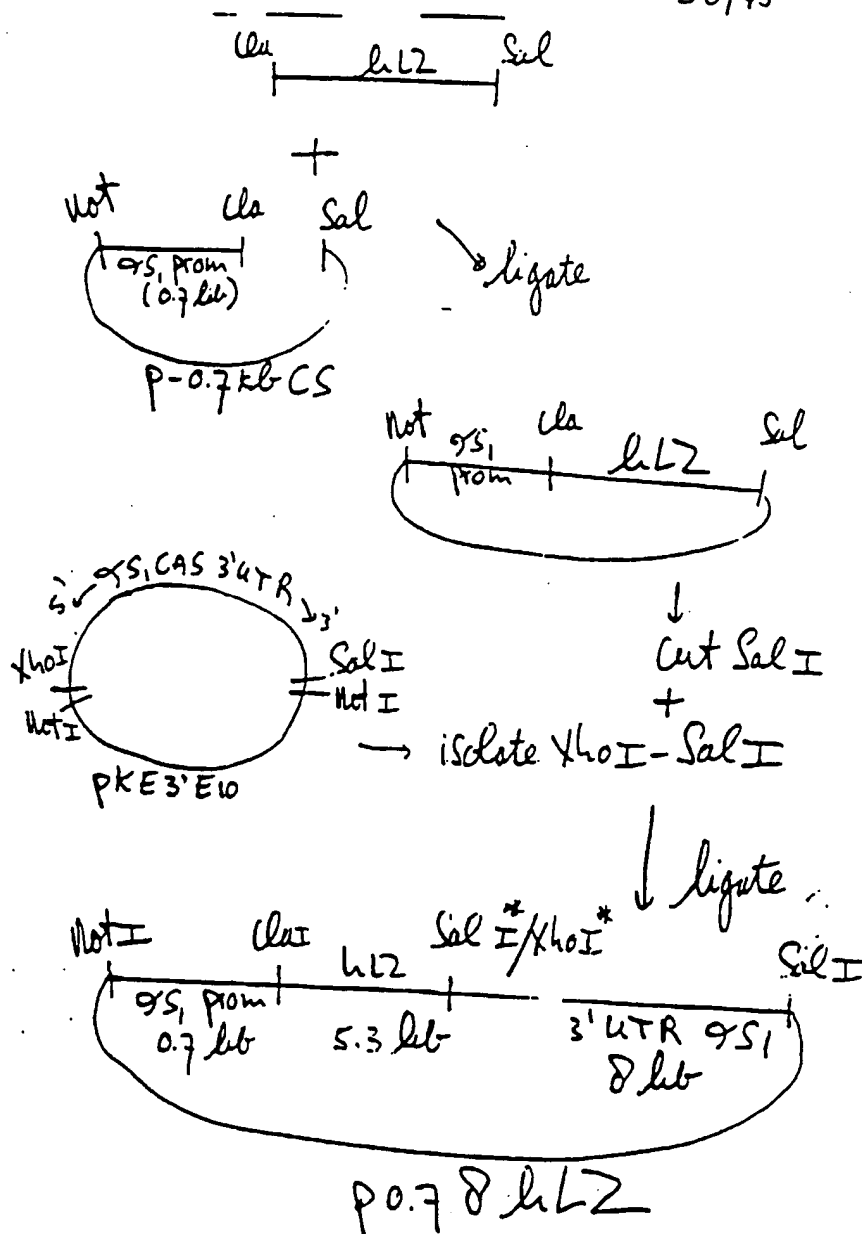 Cla hLZ Sal
+
Not Cla Sal
αS₁ prom
(0.7 kb)
ligate
p-0.7kb CS
Not αS₁ prom Cla hLZ Sal
5' αS₁CAS 3'UTR 3'
XhoI SalI
NotI NotI
pKE3'E10
Cut SalI
+
isolate XhoI-SalI
ligate
NotI ClaI SalI*/XhoI* SalI
αS₁ prom hLZ 3'UTR αS₁
0.7 kb 5.3 kb 8 kb
p0.7 8 hLZ